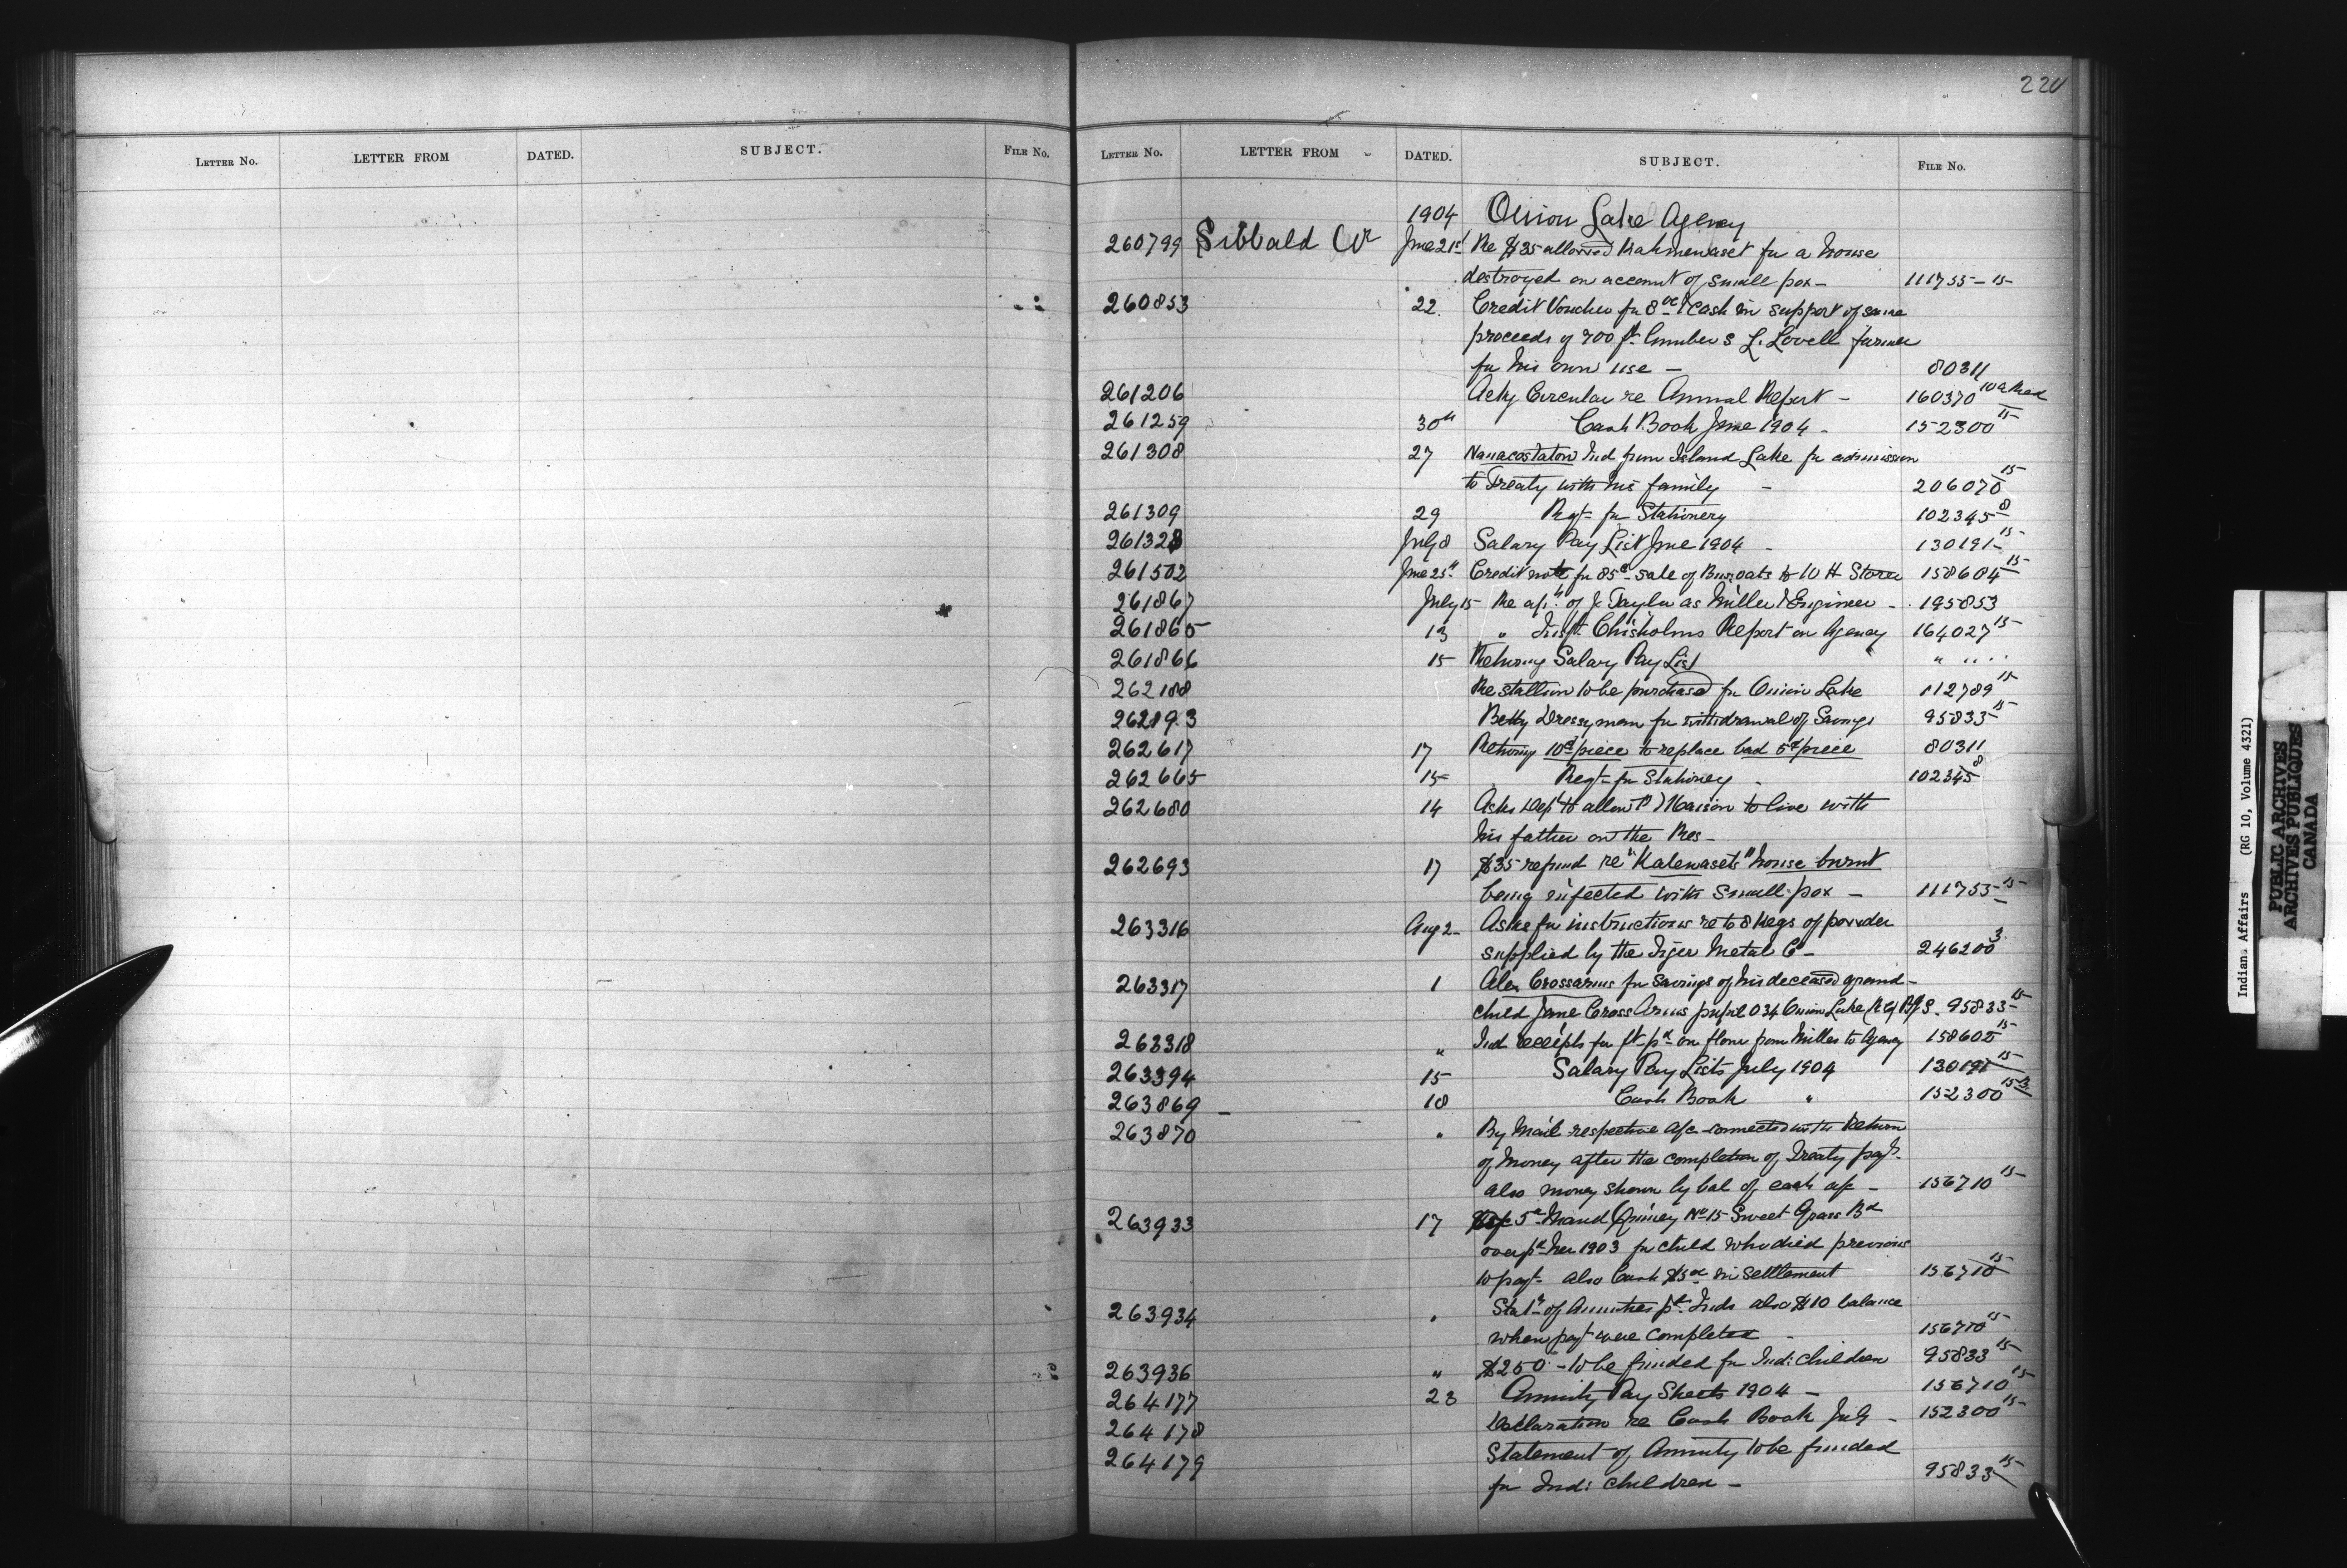 220
LETTER NO. LETTER FROM DATED. SUBJECT. FILE NO.
LETTER NO. LETTER FROM DATED. SUBJECT. FILE NO.
1904 Onion Lake Agency
260799 Sibbald W June 21st Re $35 allowed Kahmewaset for a house
destroyed on account of small pox - 111755-15
260853 22. Credit Voucher for 8 00 & cash in support of same
proceeds of 700 ft lumber S L. Lovell farmer
for his own use - 80311
261206 Ackg Circular re Annual Report - 160370
261259 30th Cash Book June 1904 - 152300 15
261308 27 Nanacostaton Ind from Island Lake for admission
to Treaty with his family - 206070 15
261309 29 Reqt for Stationery 102345 8
261328 July 8 Salary Pay List June 1904 - 130191 15
261502 June 25th Credit note for 85c sale of Bur. oats to W H Storer 158604 15
261867 July 15 Re apt of J Taylor as Miller & Engineer - 195853
261865 13 " Inspt. Chisholms Report on Agency 164027 15
261866 15 Returng Salary Pay List " " "
262188 Re stallion to be purchased for Onion Lake 112789 15
262193 Betty Dressyman for withdrawal of Savings 95833 15
262617 17 Returng 10c piece to replace bad 5c piece 80311
262665 15 Reqt for Stationery - 102345 8
262680 14 Asks Dept to allow to live with
his father on the Res -
262693 17 $35 refund re "Kalewasets" house burnt
being infected with small pox - 111755 15
263316 Aug 2 Asks for instructions re to 8 Kegs of powder
supplied by the Tiger Metal Co - 246200 3
263317 1 Alex Crossarms for Savings of his deceased grand-
child Jane Cross Arms pupil 034 Onion Lake R C B/S. 95833 15
263318 " Ind receipts for ft pd on flour from Mill to Agency 158605 15
263394 15 Salary Pay Lists July 1904 130191 15
263869 - 18 Cash Book " 152300 15
263870 " By Mail respective a/c connected with Return
of Money after the completion of Treaty payt.
also money shown by bal of cash a/c - 156710 15
263933 17 5 Maud Quiney No 15 Sweet Grass Bd
overpd 1903 for child who died previous
to payt also Cash $5 00 in settlement 156710 15
263934 " Statt of Annuities pd Inds also $10 balance
when payt were completed - 156710 15
263936 " $250 - to be funded for Ind: Children 95833 15
264177 23 Annuity Pay Sheets 1904 - 156710 15
264178 Declaration re Cash Book July - 152300 15
264179 Statement of Annuity to be funded
for Ind: children - 95833 15
Indian Affairs (RG 10, Volume 4321)
PUBLIC ARCHIVES
ARCHIVES PUBLIQUES
CANADA